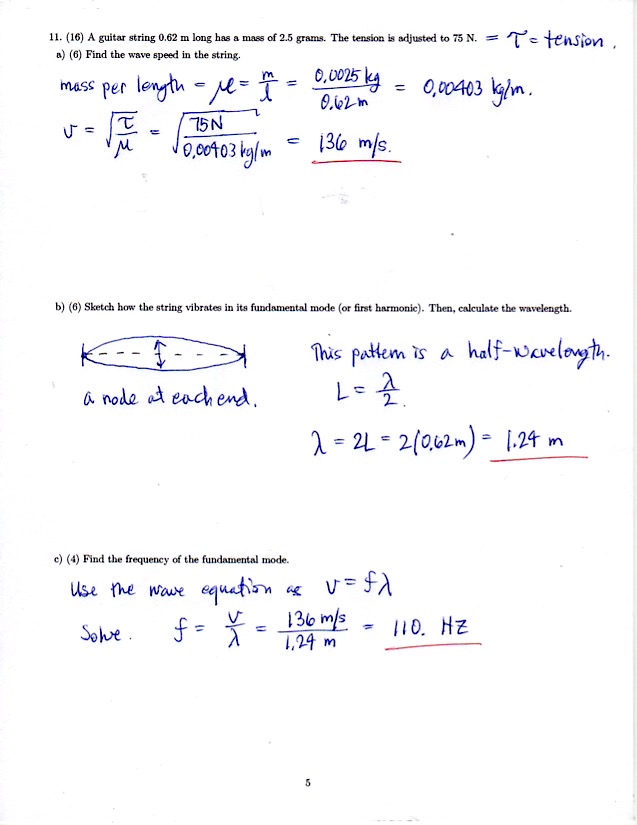 11. (16) A guitar string 0.62 m long has a mass of 2.5 grams. The tension is adjusted to 75 N. = τ = tension.
a) (6) Find the wave speed in the string.
mass per length = μ = m/l = 0.0025 kg/0.62 m = 0.00403 kg/m.
v = √(τ/μ) = √(75N/0.00403 kg/m) = 136 m/s.
b) (6) Sketch how the string vibrates in its fundamental mode (or first harmonic). Then, calculate the wavelength.
This pattern is a half-wavelength.
a node at each end.
L = λ/2.
λ = 2L = 2(0.62m) = 1.24 m
c) (4) Find the frequency of the fundamental mode.
Use the wave equation as v = fλ
Solve. f = v/λ = 136 m/s/1.24 m = 110. HZ
5